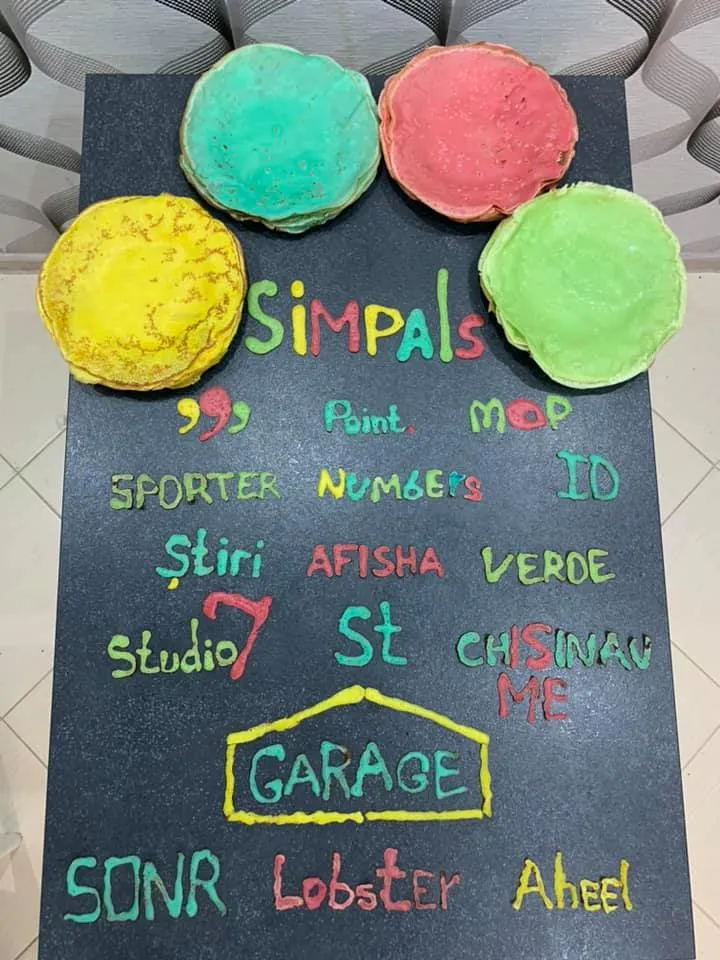 SiMPAls
999 Point. MOP
SPORTER NUMbErs ID
Știri AFISHA VERDE
Studio7 St CHISINAU
ME
GARAGE
SONR LobstEr AhEEl